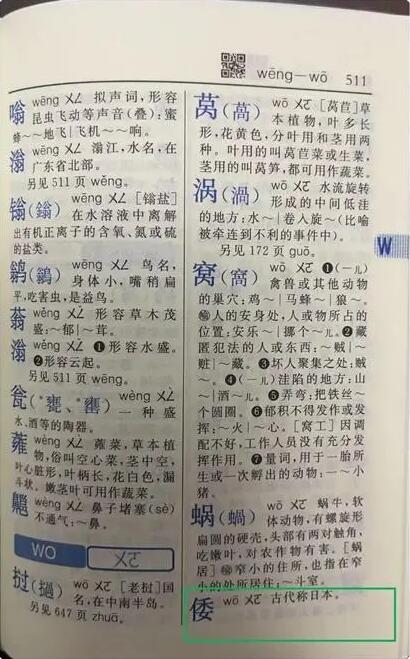 wēng—wō 511
嗡 wēng ㄨㄥ 拟声词，形容
昆虫飞动等声音（叠）：蜜
蜂～～地飞｜飞机～～响。
滃 wēng ㄨㄥ 滃江，水名，在
广东省北部。
另见 511 页 wěng。
鎓（鎓） wēng ㄨㄥ [鎓盐]
在水溶液中离解
出有机正离子的含氧、氮或硫
的盐类。
鹟（鶲） wēng ㄨㄥ 鸟名，
身体小，嘴稍扁
平，吃害虫，是益鸟。
蓊 wěng ㄨㄥˇ 形容草木茂
盛：～郁｜～茸。
滃 wěng ㄨㄥˇ ❶形容水盛。
❷形容云起。
另见 511 页 wēng。
瓮（*甕、*罋） wèng ㄨㄥˋ
一种盛
水、酒等的陶器。
蕹 wèng ㄨㄥˋ 蕹菜，草本植
物，俗叫空心菜，茎中空，
叶心脏形，叶柄长，花白色，漏
斗状。嫩茎叶可用作蔬菜。
齆 wèng ㄨㄥˋ 鼻子堵塞（sè）
不通气：～鼻。
WO ㄨㄛ
挝（撾） wō ㄨㄛ [老挝]国
名，在中南半岛。
另见 647 页 zhuā。
莴（萵） wō ㄨㄛ [莴苣]草
本植物，叶多长
形，花黄色，分叶用和茎用两
种。叶用的叫莴苣菜或生菜，
茎用的叫莴笋，都可用作蔬菜。
涡（渦） wō ㄨㄛ 水流旋转
形成的中间低洼
的地方：水～｜卷入旋～（比喻
被牵连到不利的事件中）。
另见 172 页 guō。
窝（窩） wō ㄨㄛ ❶（一儿）
禽兽或其他动物
的巢穴：鸡～｜马蜂～｜狼～。
㊀人的安身处，人或物所占的
位置：安乐～｜挪个～儿。❷藏
匿犯法的人或东西：～贼｜～
赃｜～藏。❸坏人聚集之处：贼
～。❹（一儿）洼陷的地方：山
～｜酒～儿。❺弄弯：把铁丝～
个圆圈。❻郁积不得发作或发
挥：～火｜～心。[窝工]因调
配不好，工作人员没有充分发
挥作用。❼量词，用于一胎所
生或一次孵出的动物：一～小
猪。
蜗（蝸） wō ㄨㄛ 蜗牛，软
体动物，有螺旋形
扁圆的硬壳，头部有两对触角，
吃嫩叶，对农作物有害。[蜗
居]窄小的住所，也指在窄
小的处所居住：～斗室。
倭 wō ㄨㄛ 古代称日本。
W